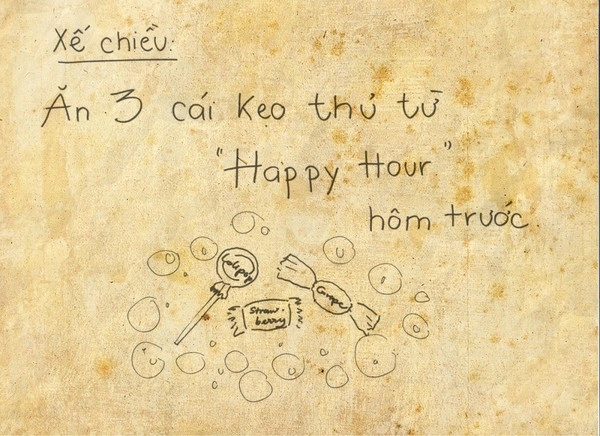 Xế chiều:
Ăn 3 cái kẹo thủ từ
"Happy Hour"
hôm trước.
Lolipop
Grape
Straw-
berry